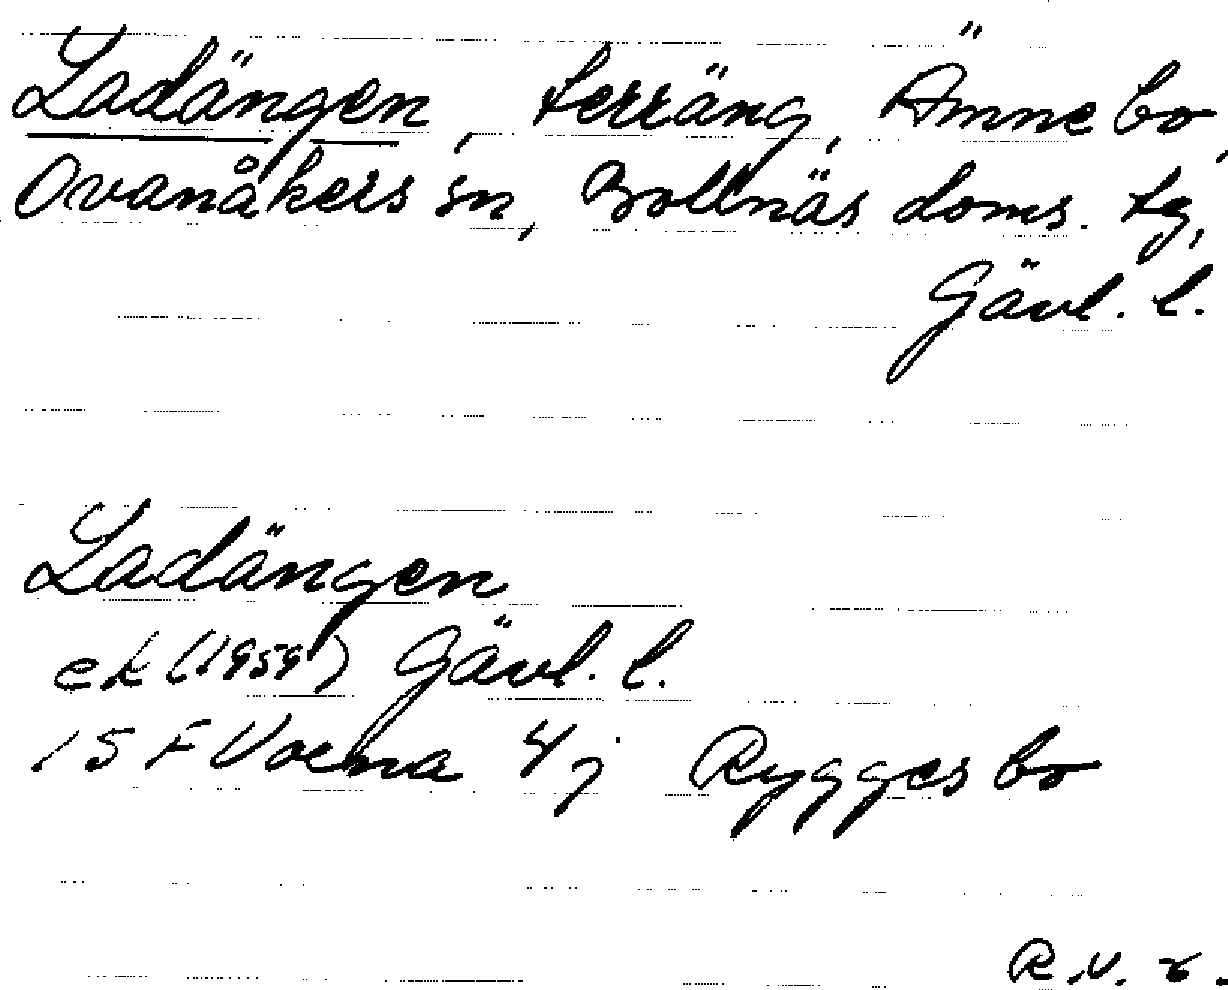 Ladängen, terräng, Ämnebo,
Ovanåkers sn, Bollnäs doms. tg,
Gävl. l.
Ladängen
ek (1959) Gävl. l.
15 F Voxna 4j Ryggesbo
R.V.